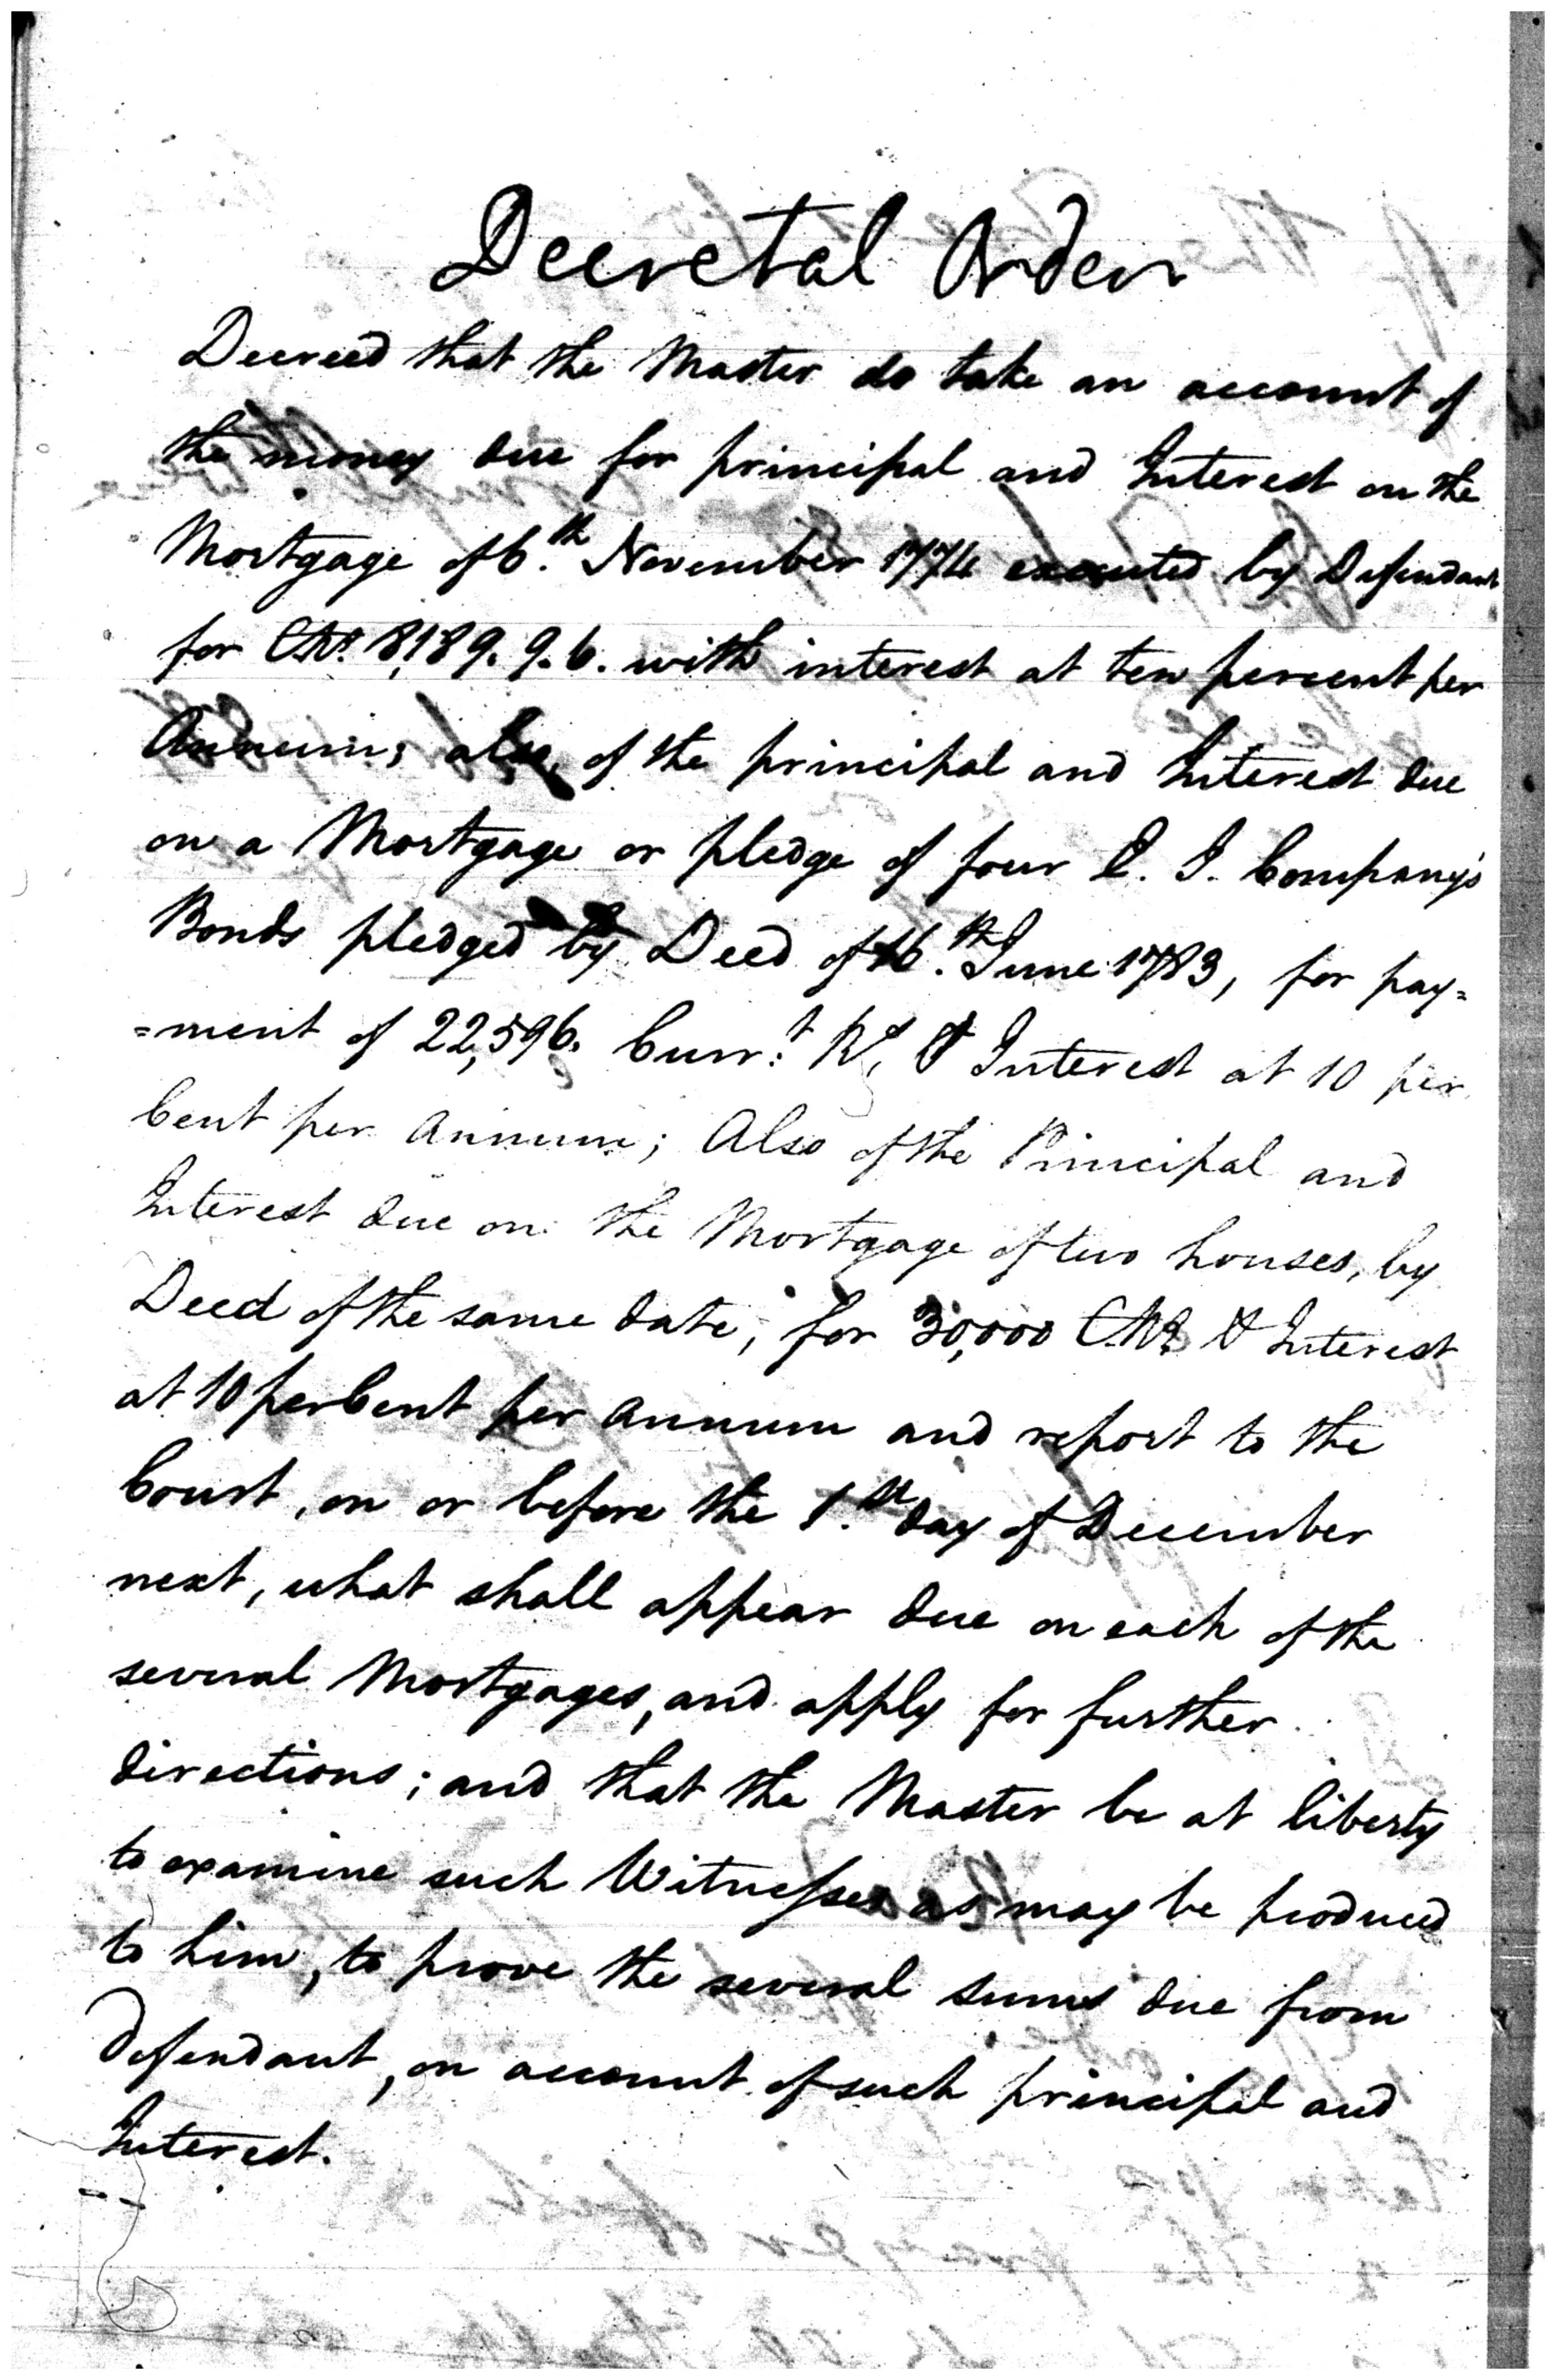 Decretal Order
Decreed that the Master do take an account of
the money due for principal and Interest on the
Mortgage of 6.th November 1774 executed by Defendant
for CRs. 8,189. 9. 6. with interest at ten percent per
Annum; also, of the principal and Interest due
on a Mortgage or pledge of four E. I. Company's
Bonds pledged by Deed of 16.th June 1783, for pay=
=ment of 22,596. Curr.t Rs, & Interest at 10 per
Cent per Annum; Also of the Principal and
Interest due on the Mortgage of two houses, by
Deed of the same date, for 30,000 CRs. & Interest
at 10 per Cent per annum and report to the
Court, on or before the 1.st day of December
next, what shall appear due on each of the
several Mortgages, and apply for further
directions; and that the Master be at liberty
to examine such Witnesses as may be produced
to him, to prove the several sums due from
Defendant, on account of such principal and
Interest.